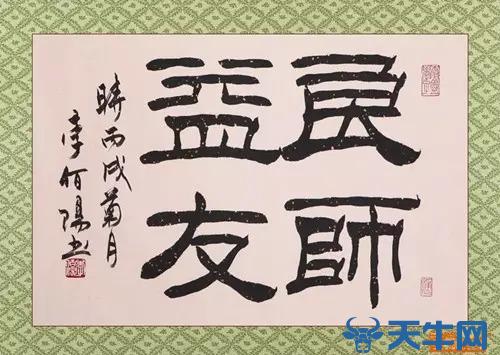 良師
益友
時丙戌菊月
李佰陽书
天牛网